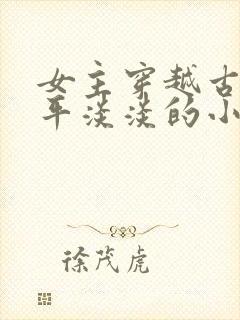 女主穿越古
平淡淡的小
徐茂虎